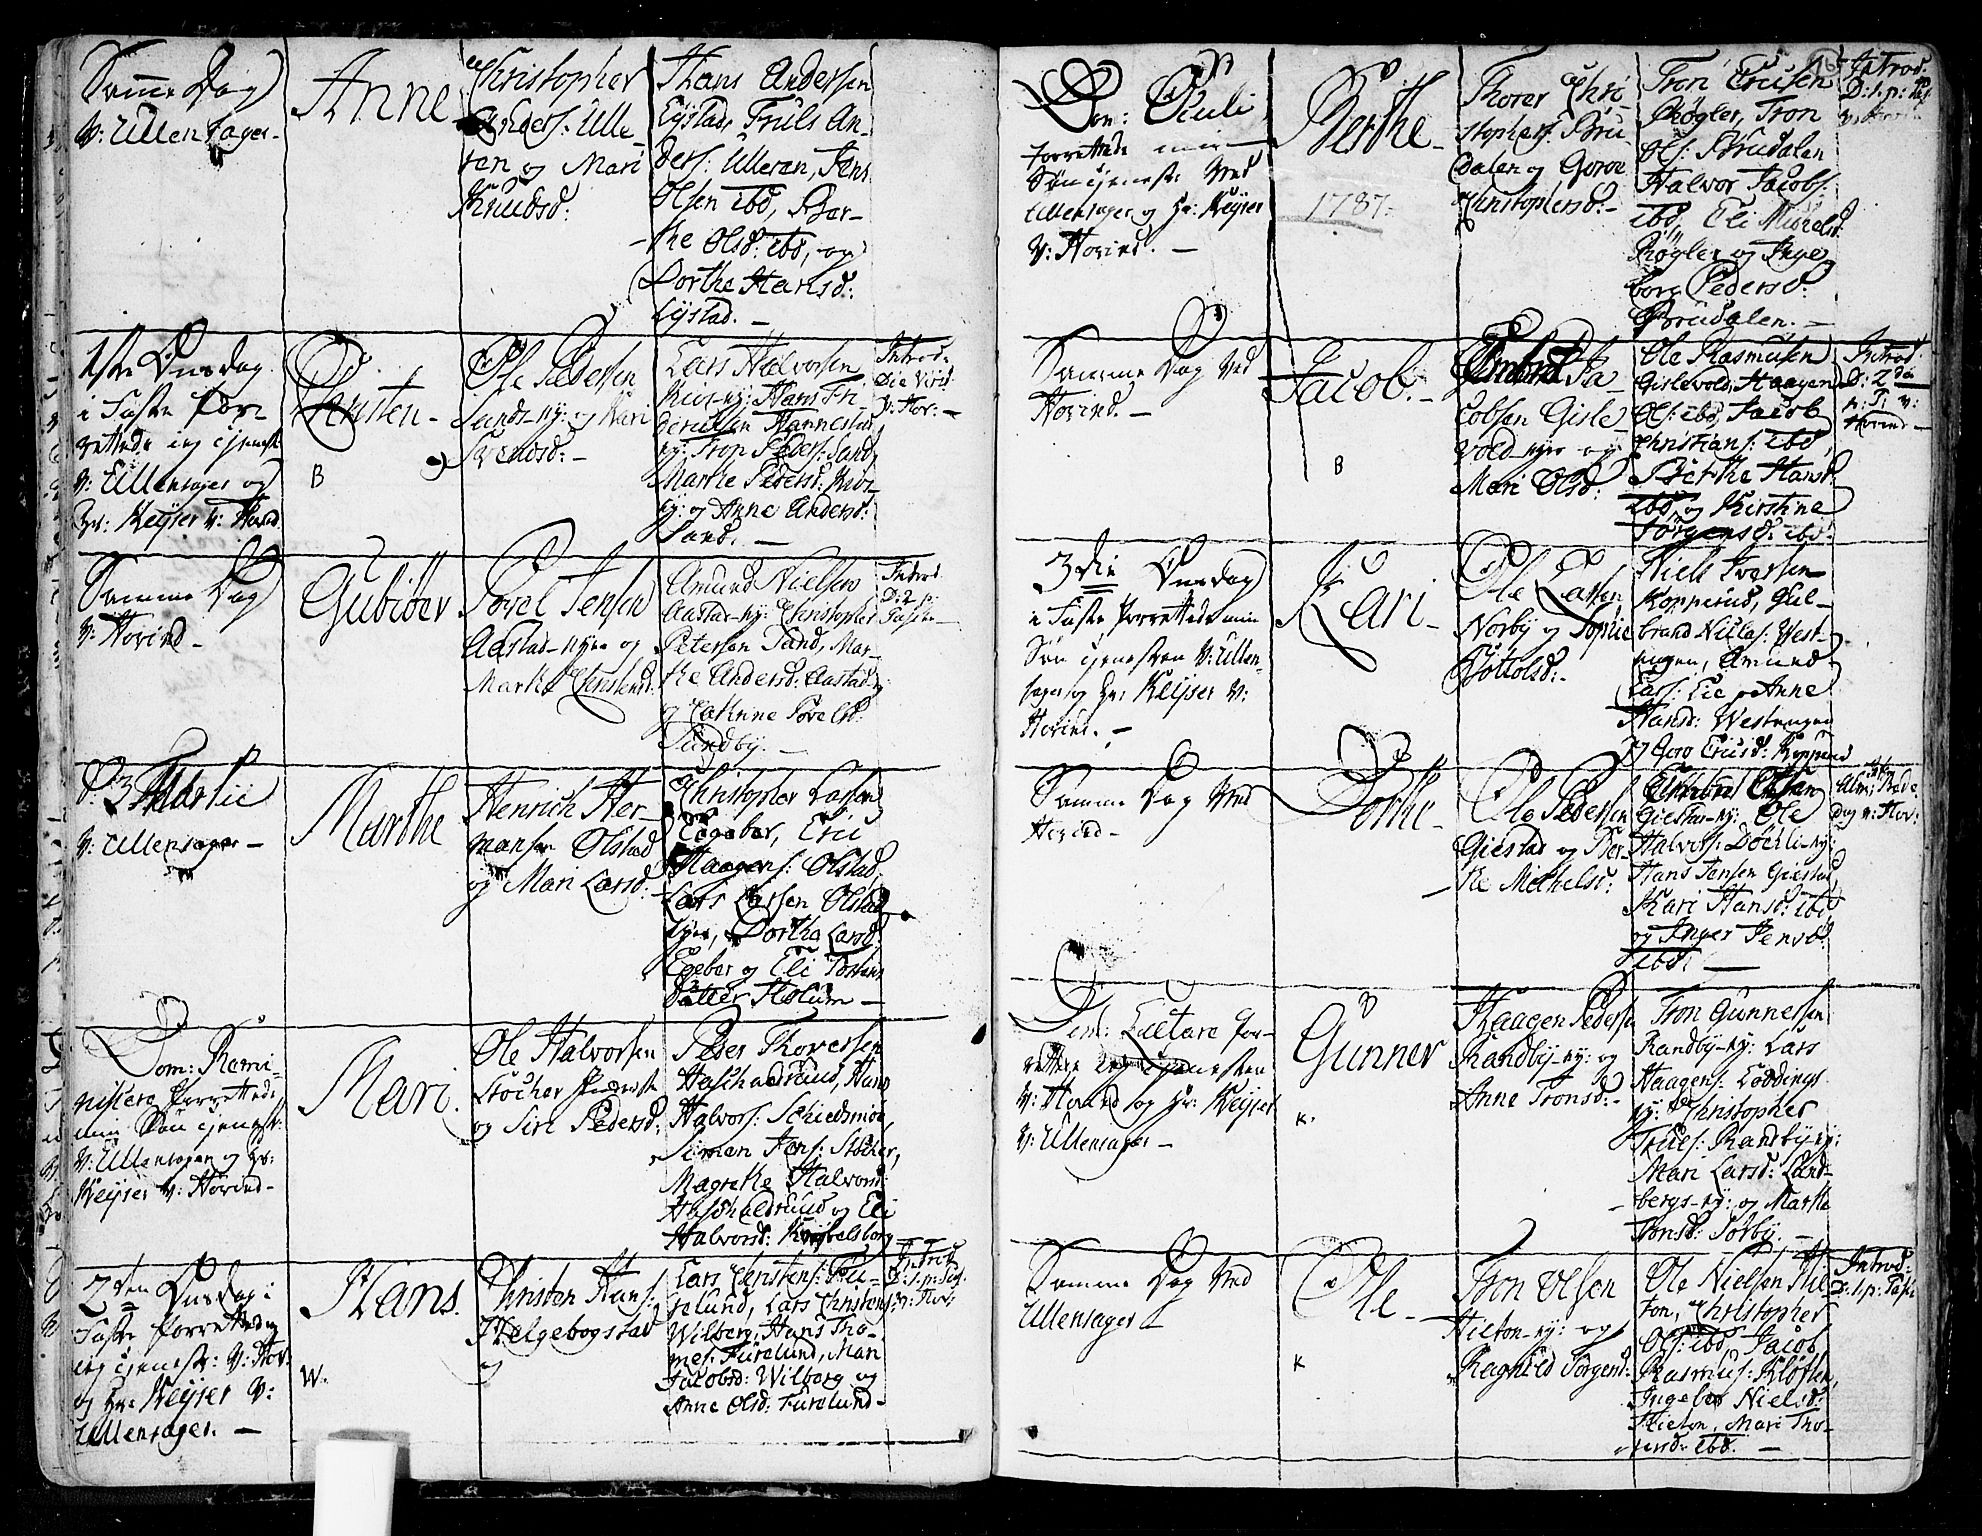 Samme Dag
V: Ullensager-
Anne
Christopher
Anders: Ulle
ren og Mari
Knudsd:
Hans Andersen
Lystad, Truls An-
ders: Ulleren, Jens
Olsen ibd, Ber-
the Olsd: ibd, og
Dorthe Hansd:
Lystad. -
1ste Onsdag
i Faste forr
rettede ieg tjenest:
V: Ullensager og
Hr: Keyser V: Hovind.
Christen-
B
Ole Pedersen
Sand-ny: og Kari
Svendsd:-
Lars Halvorsen
Hans Fri
derichsen Hannestad
ny: Tron Peders: Sand,
Marthe Pedersd:
ny: og Anne Andersd:
Sand. -
Introd:
V: Hov: -
Samme Dag
V: Hovind -
Gubiøer
Povel Jensen
Aastad-nyre og
Marthe Christensd:
Amund Nielsen
Aastad-ny: Christopher
Petersen Sand, Mar-
the Andersd: Aastad
og Cathrine Povelsd:
Sundby. -
Introd
D: 2 p:
Faste-
D: 3 Martii
V: Ullensager -
Marthe
Henrich Her-
mansen Olstad
og Mari Larsd:-
Christopher Larsen
Egeber, Eric
Haagens: Olstad,
Lars Larsen Olstad
nyre, Dorthe Larsd:
Egeber og Eli Tostens
Datter Holum -
Dom: Remi-
niscere forrettede
min Søn tjenest:
V: Ullensager og Hr:
Keyser V: Hovind-
Mari.
Ole Halvorsen
Stocher
og Siri Pedersd:
Peder Thoresen
Hans
Halvors: Schiedsmoe,
Simen Jens: Stocher,
Magrethe Halvorsd:
og Eli
Halvorsd:
2den Onsdag i
Faste forrettede
ieg tjenest: V: Hov:
og Hr: Keyser V:
Ullensager. -
Hans.
W.
Christen Hans:
Helgebogstad
og
Lars Christens: Fu-
relund, Lars Christens:
Wilberg, Hans Tho-
mes: Furelund, Mari
Jacobsd: Wilberg og
Anne Olsd: Furelund-
Introd
D: 1. p: Pas:
V: Hov:
Dom: Oculi
forrettede min
Søn tjeneste Ved
Ullensager og Hr: Keyser
V: Hovind. -
Berthe-
1787.
Thorer Chri
stophers: Bru
dalen og Goroe
Christophersd:-
Tron Ericsen
Røgler, Tron
Ols: Brudalen
Halvor Jacobs:
ibd, Eli Michelsd:
Røgler og Inge
borg Pedersd:
Brudalen. -
Introd
D: 1. p: Pas:
Samme Dag Ved
Hovind. -
Jacob.-
B
Ja
cobsen Gisle-
vold-nyre og
Mari Olsd:
Ole Rasmusen
Gislevold, Haagen
Ols: ibd, Jacob
Christians: ibd,
Berthe Hansd:
ibd, og Kirstine
Jørgensd: ibd.
Introd
D: 2da
p: P: V:
Hovind -
3die Onsdag
i Faste forrettede min
Søn tjenesten V: Ullen-
sager og Hr: Keyser V:
Hovind. -
Kari-
Ole Larsen
Norby og Sophie
Bottolsd:-
Niels Iversen
Kopperud, Gul-
brand Niclas: West-
engen, Amund
Lars: Lie og Anne
Hansd: Westengen
og Goro Ericsd: Kopperud
Samme Dag Ved
Hovind-
Dorthe-
Ole Pedersen
Giestad og Ber-
the Michelsd:
Giestad-ny: Ole
Halvors: Døchli-ny:
Hans Jensen Giestad
Kari Hansd: ibd
og Inger Jensd:
ibd. -
Dag V: Hov:
Dom: Lætare for-
rettede ieg tjenesten
V: Hovind og Hr: Keyser
V: Ullensager -
Gunner
K.
Haagen Peders:
Randby-ny: og
Anne Tronsd:-
Tron Gunnersen
Randby-ny: Lars
Haagens: Lødding
ny: Christopher
Truls: Randby-ny:
Mari Larsd: Land-
bergs-ny: og Marthe
Jonsd: Sørby. -
Samme Dag Ved
Ullensager -
Ole-
K
Tron Olsen
Hilton-ny: og
Ragnild Jørgensd:
Ole Nielsen Hil-
ton, Christopher
Ols: ibd, Jacob
Rasmus: Kløften,
Ingebor Nielsd:
Hilton, Mari Tho-
resd: ibd. -
Introd:
D: 1. p: Pasc: